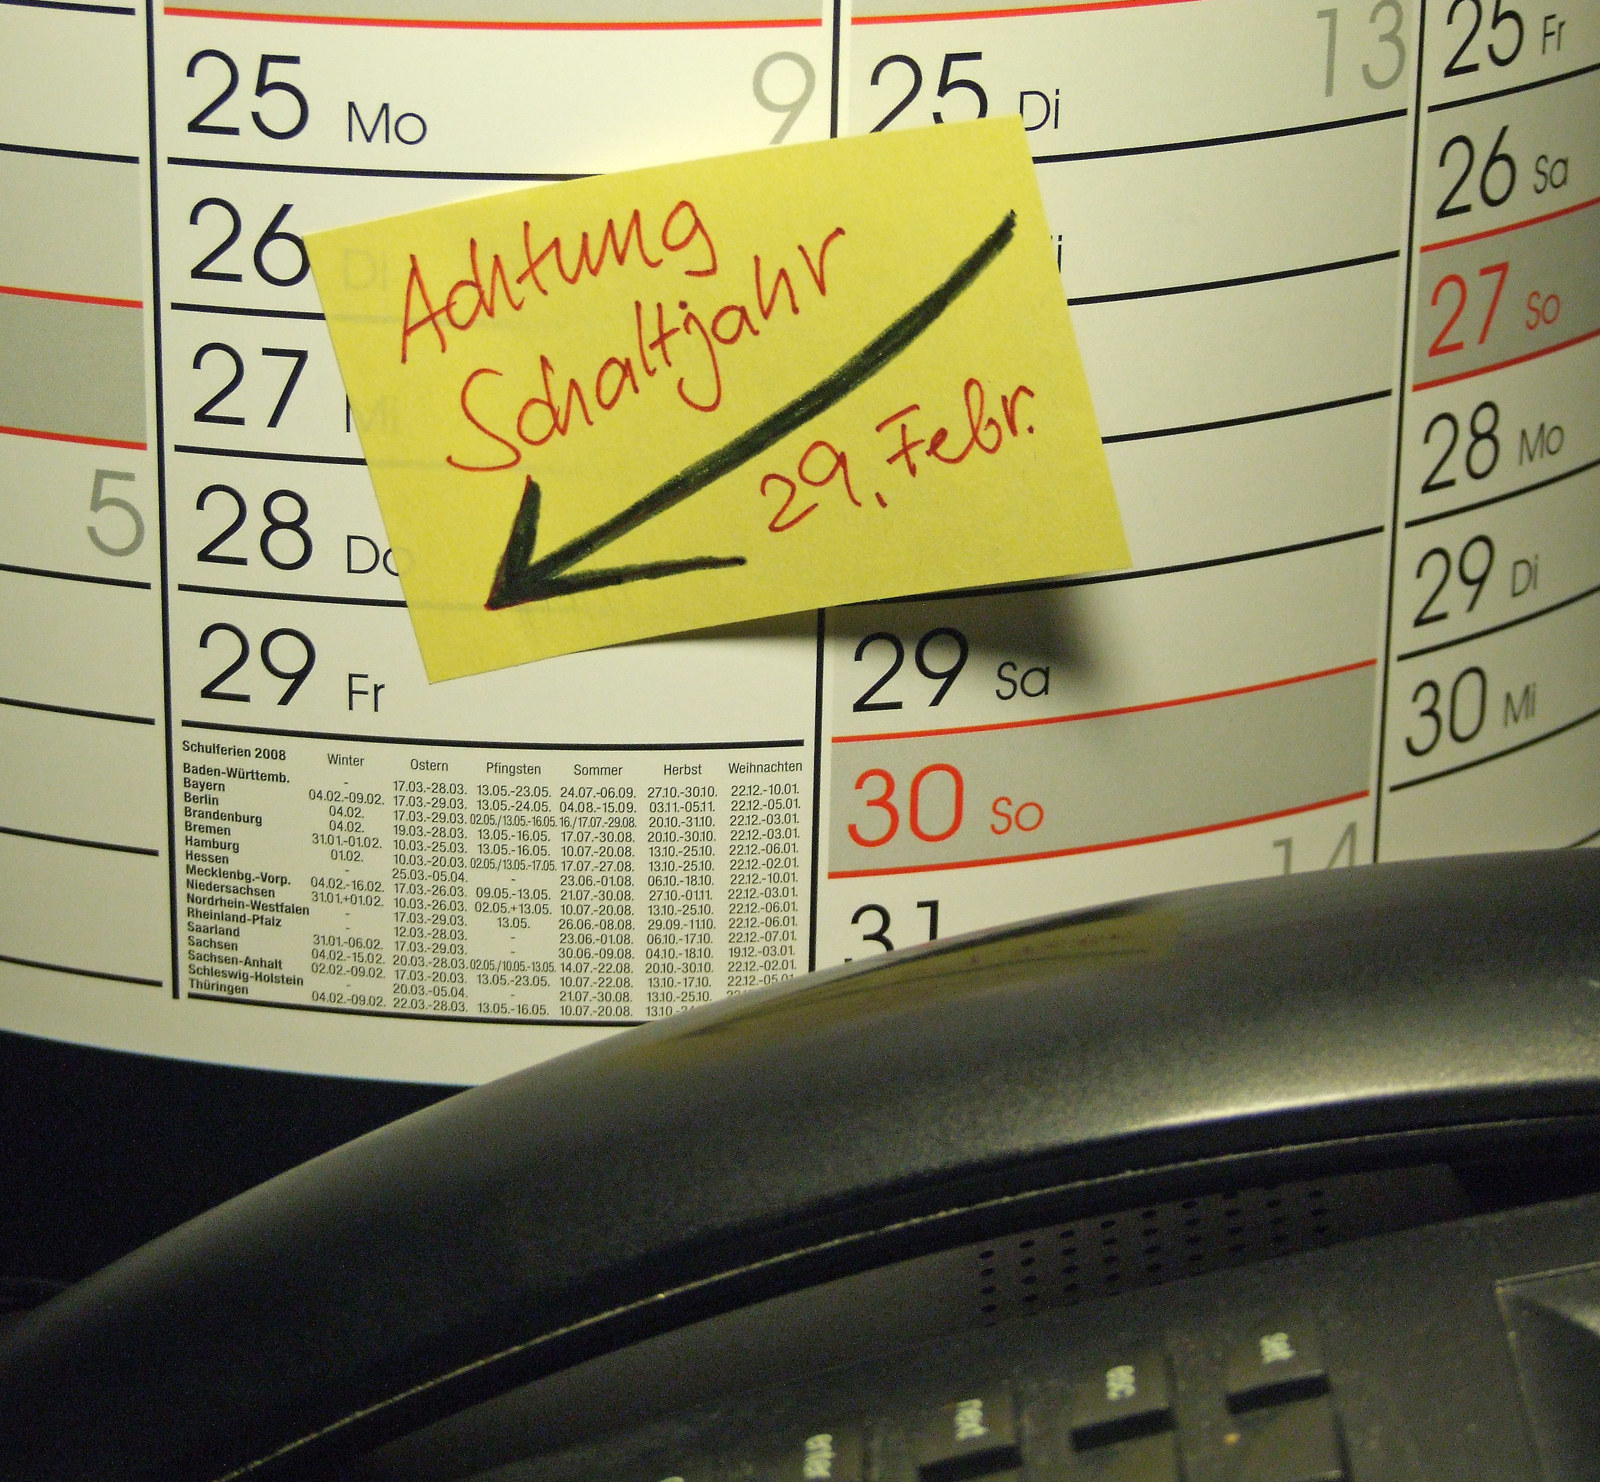 25 Mo 9
26 Di
27 Mi
28 Do
29 Fr
5
Achtung
Schaltjahr
29. Febr.
Schulferien 2008 Winter Ostern Pfingsten Sommer Herbst Weihnachten
Baden-Württemb. - 17.03.-28.03. 13.05.-23.05. 24.07.-06.09. 27.10.-30.10. 22.12.-10.01.
Bayern 04.02.-09.02. 17.03.-29.03. 13.05.-24.05. 04.08.-15.09. 03.11.-05.11. 22.12.-05.01.
Berlin 04.02. 17.03.-29.03. 02.05./13.05.-16.05. 16./17.07.-29.08. 20.10.-31.10. 22.12.-03.01.
Brandenburg 04.02. 19.03.-28.03. 13.05.-16.05. 17.07.-30.08. 20.10.-30.10. 22.12.-03.01.
Bremen 31.01.-01.02. 10.03.-25.03. 13.05.-16.05. 10.07.-20.08. 13.10.-25.10. 22.12.-06.01.
Hamburg 01.02. 10.03.-20.03. 02.05./13.05.-17.05. 17.07.-27.08. 13.10.-25.10. 22.12.-02.01.
Hessen - 25.03.-05.04. - 23.06.-01.08. 06.10.-18.10. 22.12.-10.01.
Mecklenbg.-Vorp. 04.02.-16.02. 17.03.-26.03. 09.05.-13.05. 21.07.-30.08. 27.10.-01.11. 22.12.-03.01.
Niedersachsen 31.01.+01.02. 10.03.-26.03. 02.05.+13.05. 10.07.-20.08. 13.10.-25.10. 22.12.-06.01.
Nordrhein-Westfalen - 17.03.-29.03. 13.05. 26.06.-08.08. 29.09.-11.10. 22.12.-06.01.
Rheinland-Pfalz - 12.03.-28.03. - 23.06.-01.08. 06.10.-17.10. 22.12.-07.01.
Saarland 31.01.-06.02. 17.03.-29.03. - 30.06.-09.08. 04.10.-18.10. 19.12.-03.01.
Sachsen 04.02.-15.02. 20.03.-28.03. 02.05./10.05.-13.05. 14.07.-22.08. 20.10.-30.10. 22.12.-02.01.
Sachsen-Anhalt 02.02.-09.02. 17.03.-20.03. 13.05.-23.05. 10.07.-22.08. 13.10.-17.10. 22.12.-05.01
Schleswig-Holstein - 20.03.-05.04. - 21.07.-30.08. 13.10.-25.10.
Thüringen 04.02.-09.02. 22.03.-28.03. 13.05.-16.05. 10.07.-20.08. 13.10.-
25 Di 13
29 Sa
30 So
31 14
25 Fr
26 Sa
27 So
28 Mo
29 Di
30 Mi
set
esc
next
enter